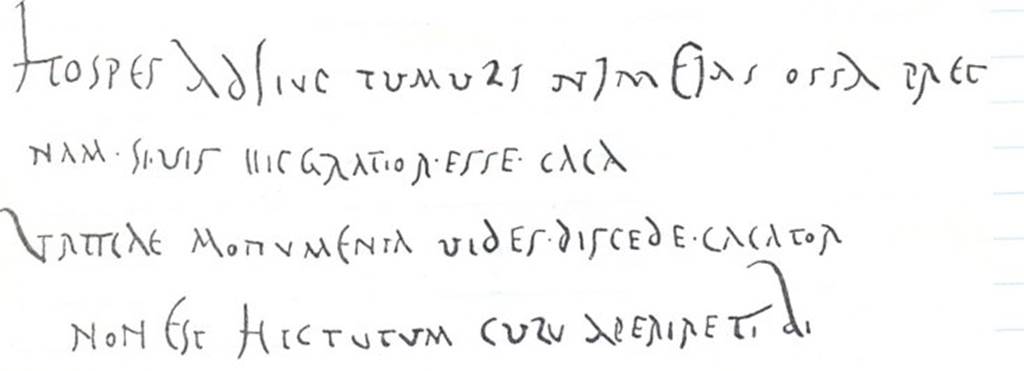 HOSPES ADHUC TUMULI NI MEIAS OSSA PREC
NAM·SI·UIS UIC GRATIOR·ESSE·CACA
URTICAE MONUMENTA UIDES·DISCEDE·CACATOR
NON EST HIC TUTUM CULU APERIRE TIBI